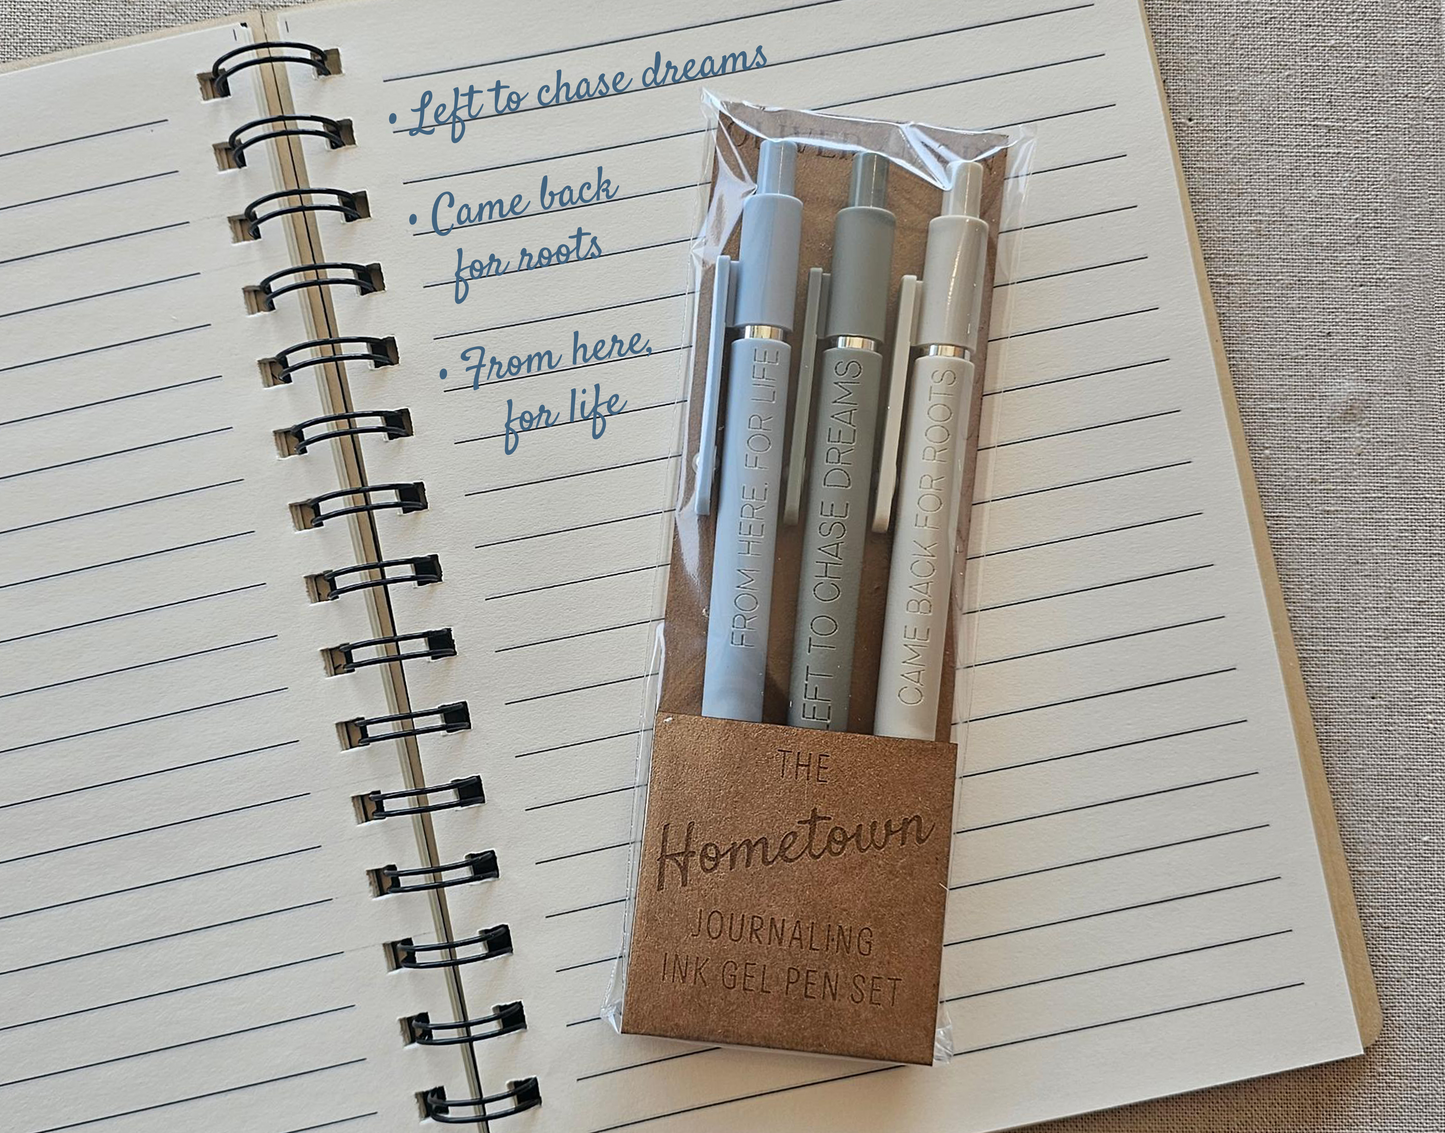 • Left to chase dreams
• Came back
for roots
• From here,
for life
FROM HERE. FOR LIFE
LEFT TO CHASE DREAMS
CAME BACK FOR ROOTS
THE
Hometown
JOURNALING
INK GEL PEN SET